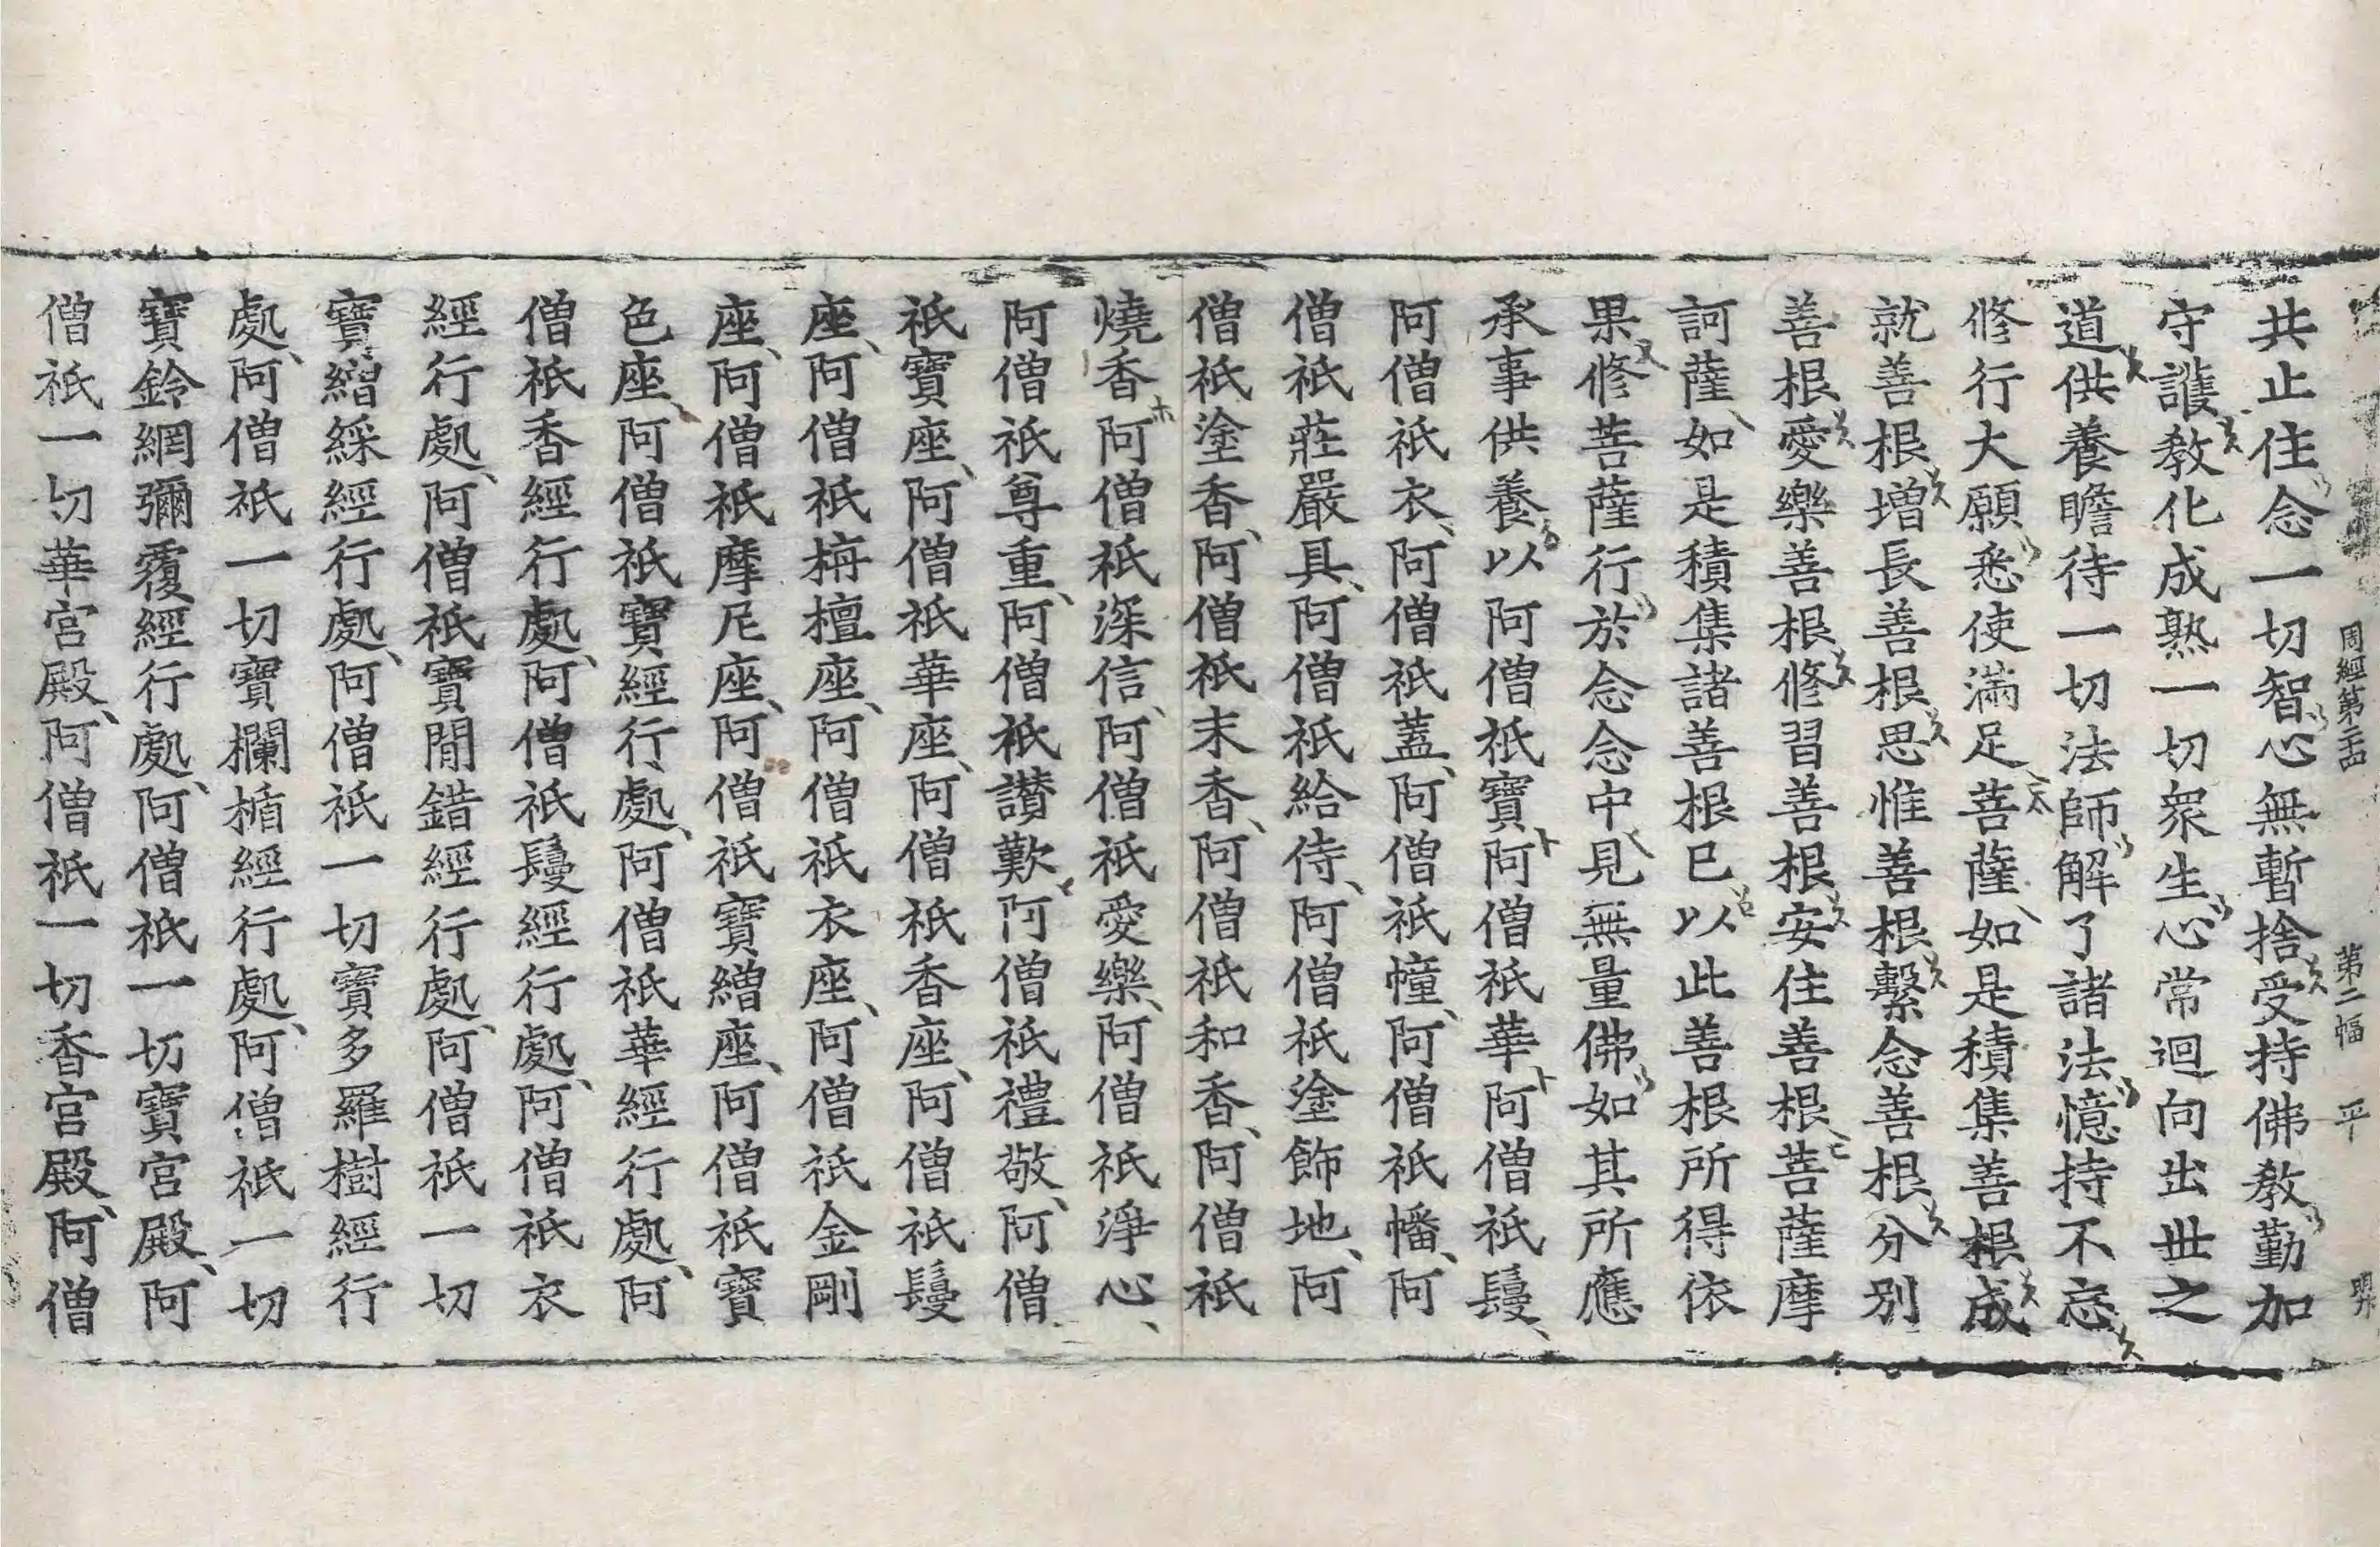 周經第二十四 第二幅 平
共止住念一切智心無暫捨受持佛教勤加
守護教化成熟一切眾生心常迴向出世之
道供養瞻待一切法師解了諸法憶持不忘
修行大願悉使滿足菩薩如是積集善根成
就善根增長善根思惟善根繫念善根分別
善根愛樂善根修習善根安住善根菩薩摩
訶薩如是積集諸善根已以此善根所得依
果修菩薩行於念念中見無量佛如其所應
承事供養以阿僧祇寶阿僧祇華阿僧祇鬘
阿僧祇衣阿僧祇蓋阿僧祇幢阿僧祇幡阿
僧祇莊嚴具阿僧祇給侍阿僧祇塗飾地阿
僧祇塗香阿僧祇末香阿僧祇和香阿僧祇
燒香阿僧祇深信阿僧祇愛樂阿僧祇淨心
阿僧祇尊重阿僧祇讚歎阿僧祇禮敬阿僧
祇寶座阿僧祇華座阿僧祇香座阿僧祇鬘
座阿僧祇栴檀座阿僧祇衣座阿僧祇金剛
座阿僧祇摩尼座阿僧祇寶繒座阿僧祇寶
色座阿僧祇寶經行處阿僧祇華經行處阿
僧祇香經行處阿僧祇鬘經行處阿僧祇衣
經行處阿僧祇寶閒錯經行處阿僧祇一切
寶繒綵經行處阿僧祇一切寶多羅樹經行
處阿僧祇一切寶欄楯經行處阿僧祇一切
寶鈴網彌覆經行處阿僧祇一切寶宮殿阿
僧祇一切華宮殿阿僧祇一切香宮殿阿僧